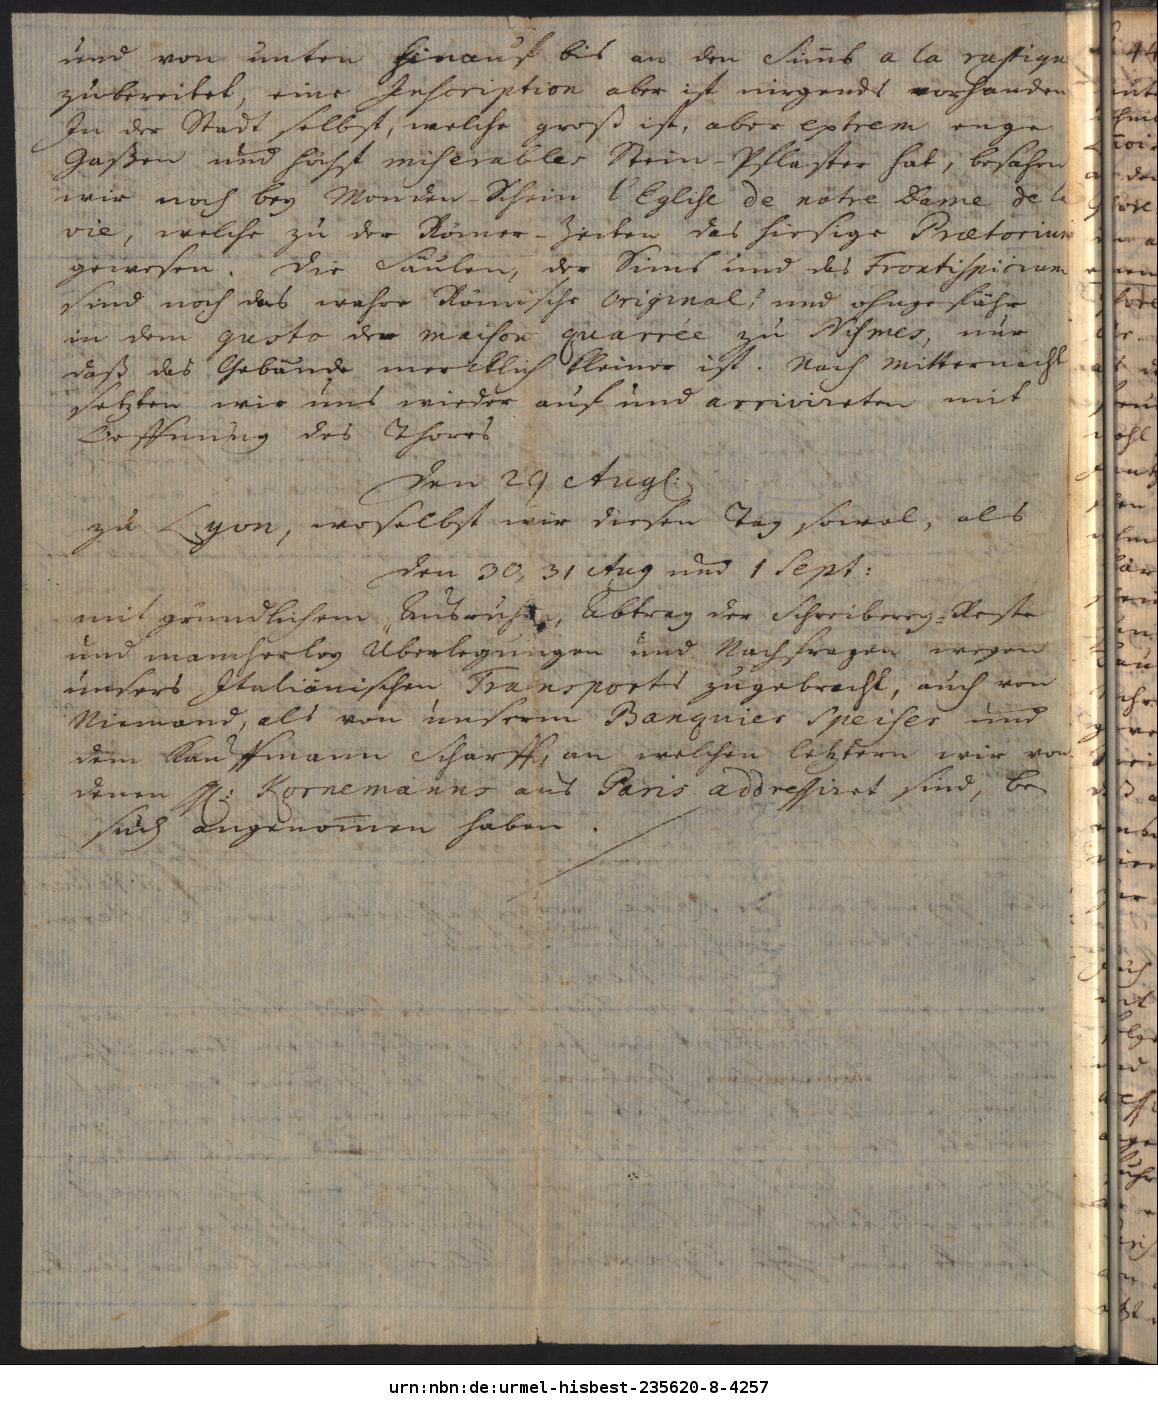 und von unten hinauf bis an den Sim̃s a la rustique
zubereitet, eine Inscription aber ist nirgends vorhanden
In der Stadt selbst, welche groß ist, aber extrem enge
Gaßen und höchst miserables Stein-Pflaster hat, besahen
wir noch bey Monden-Schein l'Eglise de notre Dame de la
vie, welche zu der Römer-Zeiten das hiesige Prætorium
gewesen. Die Säulen, der Sims und das Frontispicium
sind noch das wahre Römische Original, und ohngefähr
in dem gusto der maison quarrée zu Nismes, nur
daß das Gebäude mercklich kleiner ist. Nach Mitternacht
setzten wir uns wieder auf und arrivireten mit
Oeffnung des Thores
den 29 Aug:
zu Lyon, woselbst wir diesen Tag sowol, als
den 30, 31 Aug und 1 Sept:
mit gründlichem Ausruhen, Abtrag der Schreiberey-Reste
und mancherley Uberlegungen und Nachfragen wegen
unsers Italiänischen Transports zugebracht, auch von
Niemand, als von unserm Banquier Speiser und
dem Kauffmann Scharff, an welchen letztern wir von
denen H: Kornemanns aus Paris addressiret sind, Be
such angenom̃en haben.
urn:nbn:de:urmel-hisbest-235620-8-4257